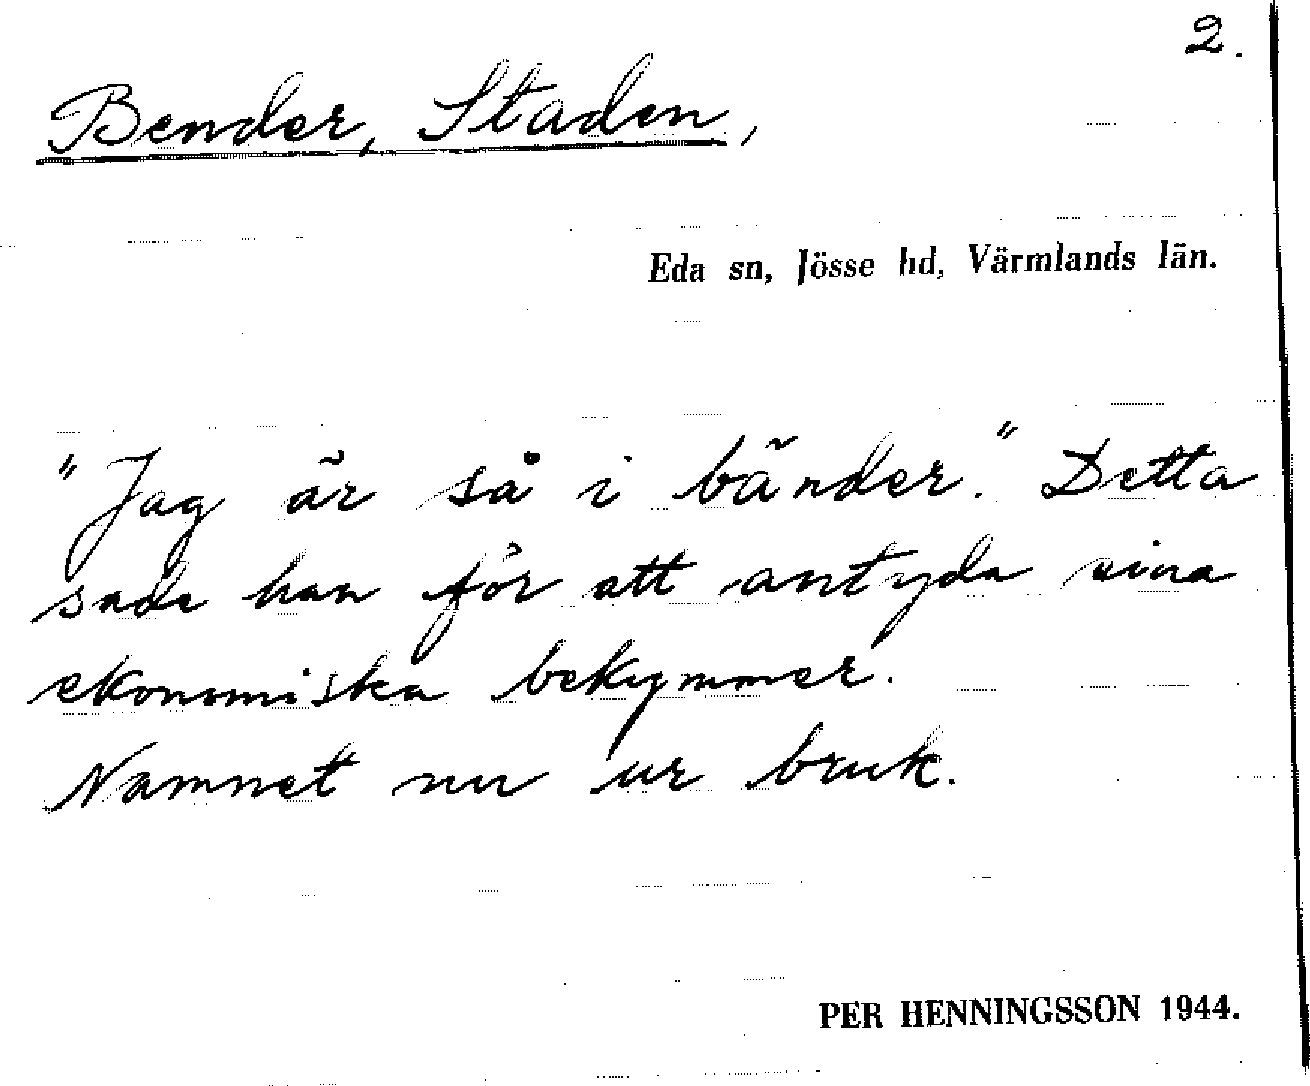 2.
Bender, Staden,
Eda sn, Jösse hd, Värmlands län.
"Jag är så i bänder." Detta
sade han för att antyda sina
ekonomiska bekymmer.
Namnet nu ur bruk.
PER HENNINGSSON 1944.